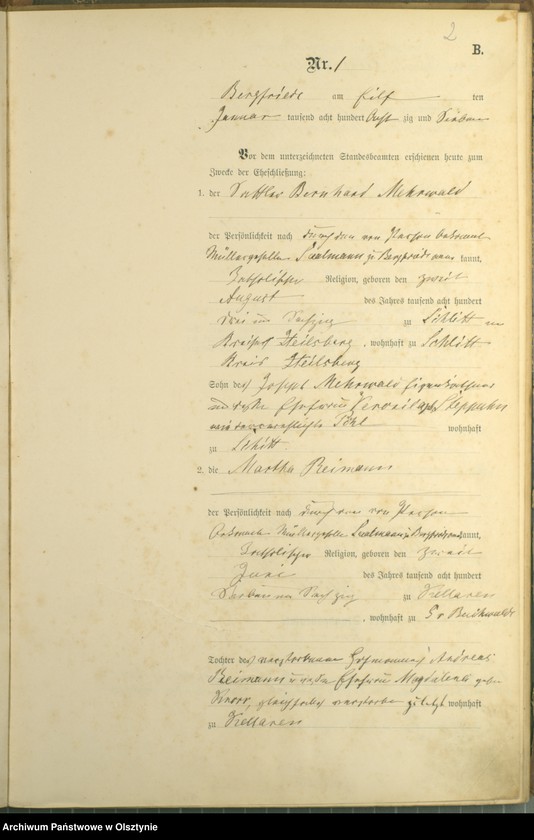 2
B.
Nr. 1
Bergfriede am Eilf ten
Januar tausend acht hundert Acht zig und Sieben
Vor dem unterzeichneten Standesbeamten erschienen heute zum
Zwecke der Eheschließung:
1. der Sattler Bernhard Mehrwald
der Persönlichkeit nach durch den von Person bekannten
Müllergesellen zu Bergfriede kannt,
katholischer Religion, geboren den zweiten
August des Jahres tausend acht hundert
drei und Sechzig zu Schlitt im
Kreise Heilsberg, wohnhaft zu Schlitt
Kreis Heilsberg
Sohn des Joseph Mehrwald Eigenkäthner
und dessen Ehefrau geb.
wohnhaft
zu Schlitt
2. die Martha Reimann
der Persönlichkeit nach durch den von Person
bekannten Müllergesellen zu Bergfriede kannt,
katholischer Religion, geboren den zweiten
Juni des Jahres tausend acht hundert
Sieben und Sechzig zu Kellaren
, wohnhaft zu Gr Buchwalde
Tochter des verstorbenen Andreas
Reimann und der Ehefrau Magdalena geb.
Knorr, gleichfalls verstorben zuletzt wohnhaft
zu Kellaren
Archiwum Państwowe w Olsztynie